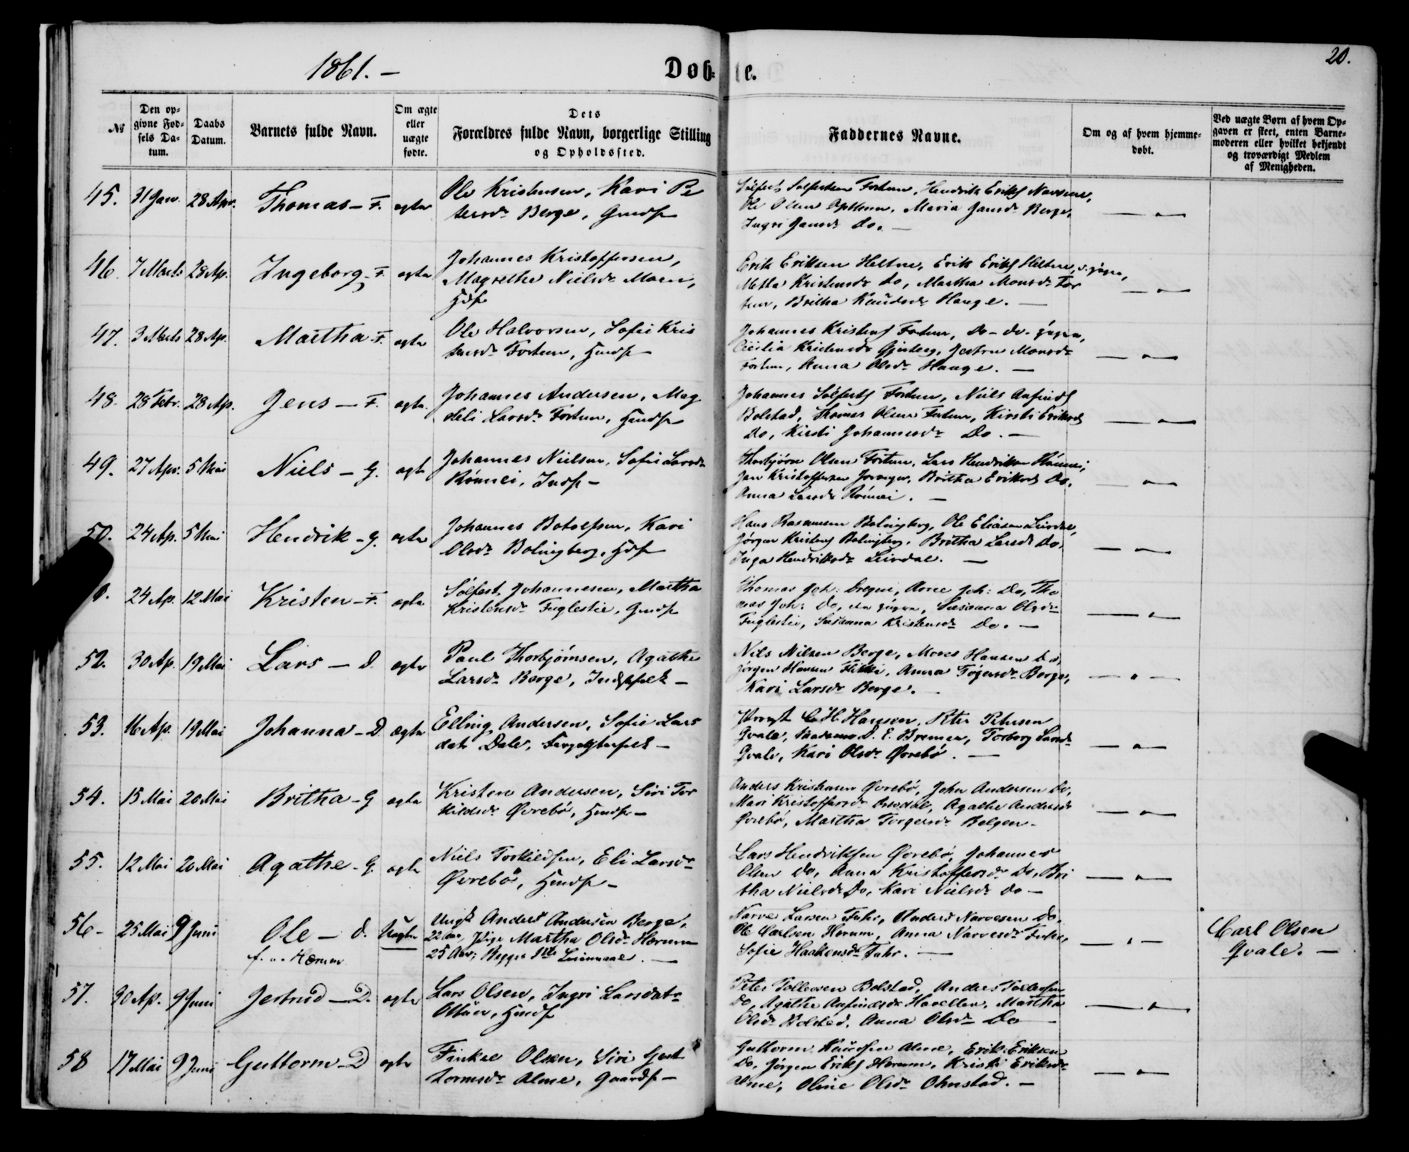 1861. –
Døbte.
20.
№
Den opgivne Fødsels Datum.
Daabs Datum.
Barnets fulde Navn.
Om ægte eller uægte fødte.
Dets Forældres fulde Navn, borgerlige Stilling og Opholdssted.
Faddernes Navne.
Om og af hvem hjemmedøbt.
Ved uægte Børn af hvem Opgaven er skeet, enten Barnemoderen eller hvilket bekjendt og troværdigt Medlem af Menigheden.
45. 31 Jan. 28 Apr. Thomas – F. ægte Ole Kristensen, Kari Pe
dersd. Berge, Gmdf
Ole Olsen Maria Jansd. Berge,
Ingri Jansd. Do. –
46. 7 Marts 28 Ap. Ingeborg – F. ægte Johannes Kristoffersen,
Magrethe Nielsd. Moen,
Hdf
Erik Eriksen Heltne, Erik Eriks. Heltne,
Metta Kristensd. Do, Martha Monsd. For
tun, Britha Knudsd. Hauge. –
47. 3 Marts 28 Ap. Martha – F. ægte Ole Halvorsen, Sofie Kris
tensd. Fortun, Hmdf –
Johannes Kristens. Fortun, Do – do – yngre,
Cicilia Kristensd. Monsd.
Fortun, Anna Olsd. Hauge. –
48. 28 Febr. 28 Ap. Jens – F. ægte Johannes Andersen, Mag
deli Larsd. Fortun, Hmdf
Johannes Solfests. Fortun, Niels Asfinds.
Bolstad, Thomas Olsen Fortun, Kirsti Eriksd.
Do, Kirsti Johannesd. Do. –
49. 27 Apr. 5 Mai Niels – G. ægte Johannes Nielsen, Sofie Larsd.
Rømei, Indf –
Thorbjørn Olsen Fortun, Lars Hendriksen
Jan Kristoffersen Britha Eriksd. Do,
Anna Larsd. –
50. 24 Ap. 5 Mai Hendrik – G. ægte Johannes Botolfsen, Kari
Olsd. Bolingberg, Hdf
Hans Rasmusen Bolingberg, Ole Eliasen
Jørgen Kristens. Bolingberg, Britha Larsd. Do,
Inga Hendriksd. –
24 Ap. 12 Mai Kristen – F. ægte Solfest Johannesen, Martha
Kristensd. Fuglestie, Gmdf
Thomas Joh: Arne Joh: Do, Tho
mas Joh: Do, den yngre, Susanna Olsd.
Fuglestie, Susanna Kristensd. Do. –
52. 30 Ap. 19 Mai Lars – D. ægte Paul Thorbjørnsen, Agathe
Larsd. Berge,
Nils Nilsen Berge, Mons Hansen Do,
Jørgen Hansen Anna Berge,
Kari Larsd. Berge. –
53. 16 Ap. 19 Mai Johanna – D ægte Elling Andersen, Sofie Lars
dat. Dale,
C. H. Hansen, Peter Petersen
Qvale, Madame D. E. Bremer, Torborg Larsd.
Qvale, Kari Olsd. Øvrebø. –
54. 15 Mai 20 Mai Britha – G ægte Kristen Andersen, Siri Tor
kildsd. Øvrebø, Hmdf –
Anders Kristensen Øvrebø, John Andersen Do,
Mari Kristoffersd. Agathe Andersd.
Øvrebø, Martha Torgersd. Bolgen.
55. 12 Mai 20 Mai Agathe – G. ægte Niels Torkildsen, Eli Larsd.
Øvrebø, Hmdf –
Lars Hendriksen Øvrebø, Johannes
Olsen Do, Anna Kristoffersd. Do, Bri
tha Nielsd. Do, Kari Nielsd. do –
56 – 25 Mai 9 Juni Ole – D. Uægte Ungk. Anders Andersen Berge,
22 Aar, Pige Martha Olsd. Hærum
25 Aar,
Narve Larsen Fuhr, Anders Narvesen Do,
Ole Carlsen Hærum, Anna Narvesd.
Sofie Haakensd. Fuhr. –
Carl Olsen
Qvale. –
57. 30 Ap. 9 Juni Jertrud – D. ægte Lars Olsen, Ingri Larsdat.
Hmdf
Peter Tollevsen Bolstad, Anders
Do, Agathe Asfindsd. Martha
Olsd. Bolstad, Anna Olsd. Do –
58 17 Mai 9 Juni Guttorm – D ægte Olsen, Siri Gut
tormsd. Alme, Gaardf –
Guttorm Knudsen Alme, Erik Eriksen
Do, Jørgen Eriks. Hærum, Kristi Eriksd.
Alme, Oline Olsd. Ohnstad. –